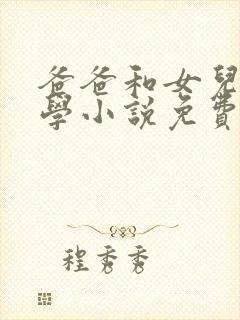 爸爸和女兒
學小説免費
程秀秀